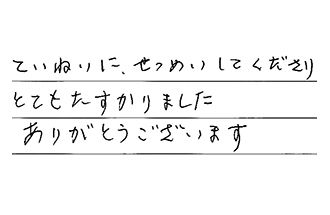 ていねいに、せつめいしてくださり
とてもたすかりました
ありがとうございます